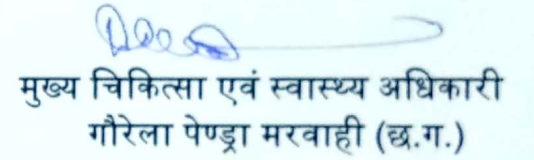 मुख्य चिकित्सा एवं स्वास्थ्य अधिकारी
गौरेला पेण्ड्रा मरवाही (छ.ग.)